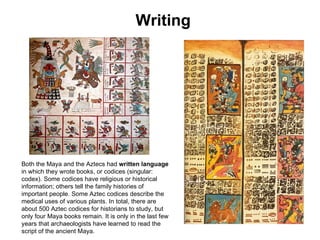 Writing
Both the Maya and the Aztecs had written language
in which they wrote books, or codices (singular:
codex). Some codices have religious or historical
information; others tell the family histories of
important people. Some Aztec codices describe the
medical uses of various plants. In total, there are
about 500 Aztec codices for historians to study, but
only four Maya books remain. It is only in the last few
years that archaeologists have learned to read the
script of the ancient Maya.